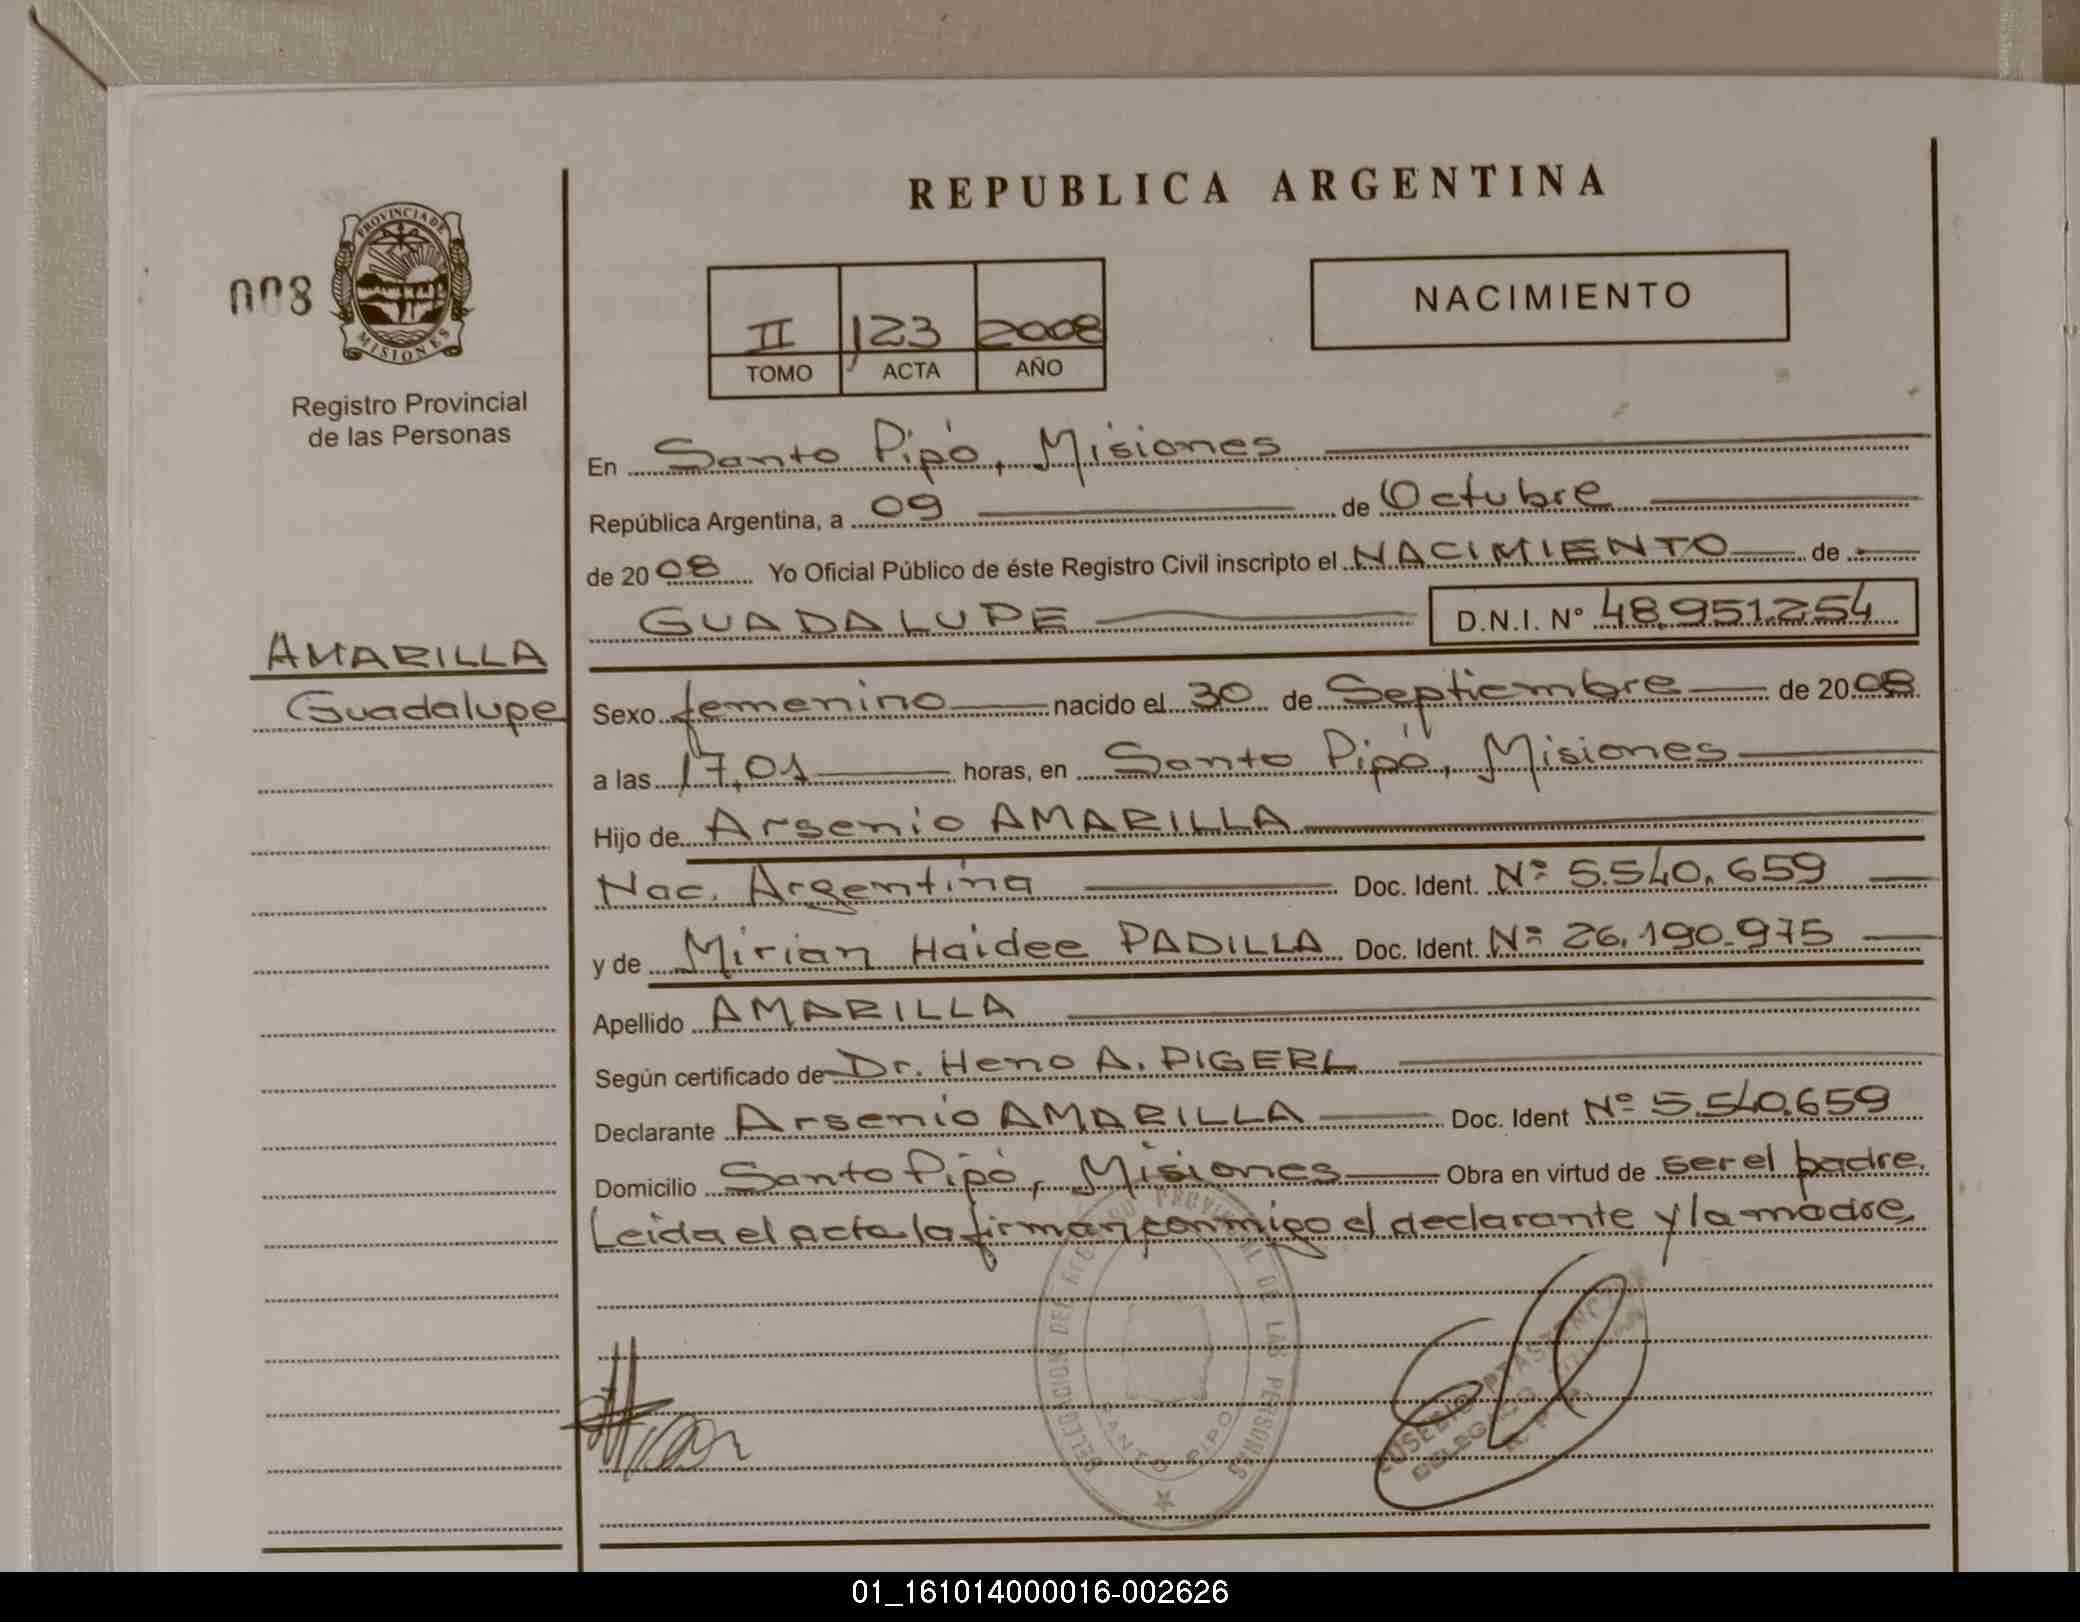 REPUBLICA ARGENTINA
008
PROVINCIA DE
MISIONES
Registro Provincial
de las Personas
II 123 2008
TOMO ACTA AÑO
NACIMIENTO
En Santo Pipó, Misiones
República Argentina, a 09 de Octubre
de 2008 Yo Oficial Público de éste Registro Civil inscripto el NACIMIENTO de
GUADALUPE D.N.I. Nº 48.951.254
AMARILLA
Guadalupe
Sexo femenino nacido el 30 de Septiembre de 2008
a las 17,01 horas, en Santo Pipó, Misiones
Hijo de Arsenio AMARILLA
Nac. Argentina Doc. Ident. Nº 5.540.659
y de Mirian Haidee PADILLA Doc. Ident. Nº 26.190.975
Apellido AMARILLA
Según certificado de Dr. Heno A. PIGERL
Declarante Arsenio AMARILLA Doc. Ident Nº 5.540.659
Domicilio Santo Pipó, Misiones Obra en virtud de ser el padre.
Leida el acta la firman conmigo el declarante y la madre.
DELEGACION DEL REGISTRO PROVINCIAL DE LAS PERSONAS
SANTO PIPO
EUSEBIO
DELEGADO
01_161014000016-002626